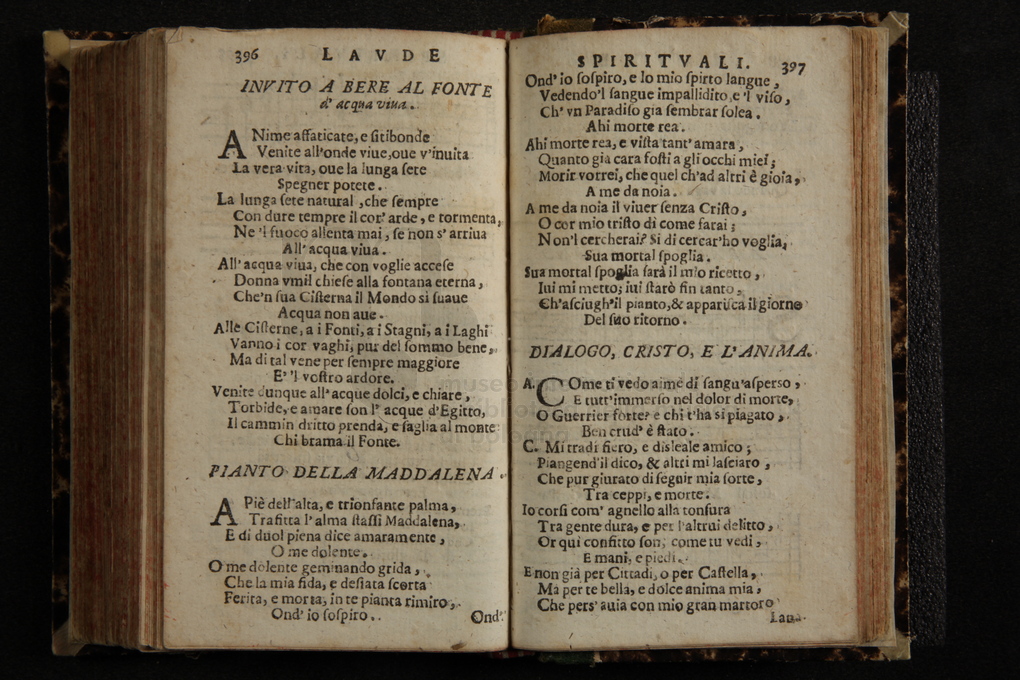 396 LAVDE
INVITO A BERE AL FONTE
d' acqua viua.
ANime affaticate, e ſitibonde
Venite all'onde viue, oue v'inuita
La vera vita, oue la lunga ſete
Spegner potete.
La lunga ſete natural, che ſempre
Con dure tempre il cor' arde, e tormenta,
Ne 'l fuoco allenta mai, ſe non s' arriua
All' acqua viua.
All' acqua viua, che con voglie acceſe
Donna vmil chieſe alla fontana eterna,
Che'n ſua Ciſterna il Mondo sì ſuaue
Acqua non aue.
Alle Ciſterne, a i Fonti, a i Stagni, a i Laghi
Vanno i cor vaghi, pur del ſommo bene,
Ma di tal vene per ſempre maggiore
E' 'l voſtro ardore.
Venite dunque all' acque dolci, e chiare,
Torbide, e amare ſon l' acque d'Egitto,
Il cammin dritto prenda, e ſaglia al monte
Chi brama il Fonte.
PIANTO DELLA MADDALENA.
A Piè dell'alta, e trionfante palma,
Trafitta l'alma ſtaſſi Maddalena,
E di duol piena dice amaramente,
O me dolente.
O me dolente geminando grida,
Che la mia fida, e deſiata ſcorta
Ferita, e morta, in te pianta rimiro,
Ond' io ſoſpiro.
Ond'
SPIRITVALI. 397
Ond' io ſoſpiro, e lo mio ſpirto langue,
Vedendo'l ſangue impallidito, e 'l viſo,
Ch' vn Paradiſo gia ſembrar ſolea.
Ahi morte rea.
Ahi morte rea, e viſta tant' amara,
Quanto già cara foſti a gli occhi miei;
Morir vorrei, che quel ch'ad altri è gioia,
A me da noia.
A me da noia il viuer ſenza Criſto,
O cor mio triſto di come farai;
Non'l cercherai? Si di cercar'ho voglia,
Sua mortal ſpoglia.
Sua mortal ſpoglia ſarà il mio ricetto,
Iui mi metto; iui ſtarò fin tanto,
Ch'aſciugh'il pianto, & appariſca il giorno
Del ſuo ritorno.
DIALOGO, CRISTO, E L'ANIMA.
A. COme ti vedo aime di ſangu'aſperso,
E tutt'immerſo nel dolor di morte,
O Guerrier forte? e chi t'ha si piagato,
Ben crud' è ſtato.
C. Mi tradì fiero, e disleale amico;
Piangend'il dico, & altri mi laſciaro,
Che pur giurato di ſeguir mia ſorte,
Tra ceppi, e morte.
Io corſi com' agnello alla tonſura
Tra gente dura, e per l'altrui delitto,
Or qui confitto ſon; come tu vedi,
E mani, e piedi.
E non già per Cittadi, o per Caſtella,
Ma per te bella, e dolce anima mia,
Che pers' auia con mio gran martoro